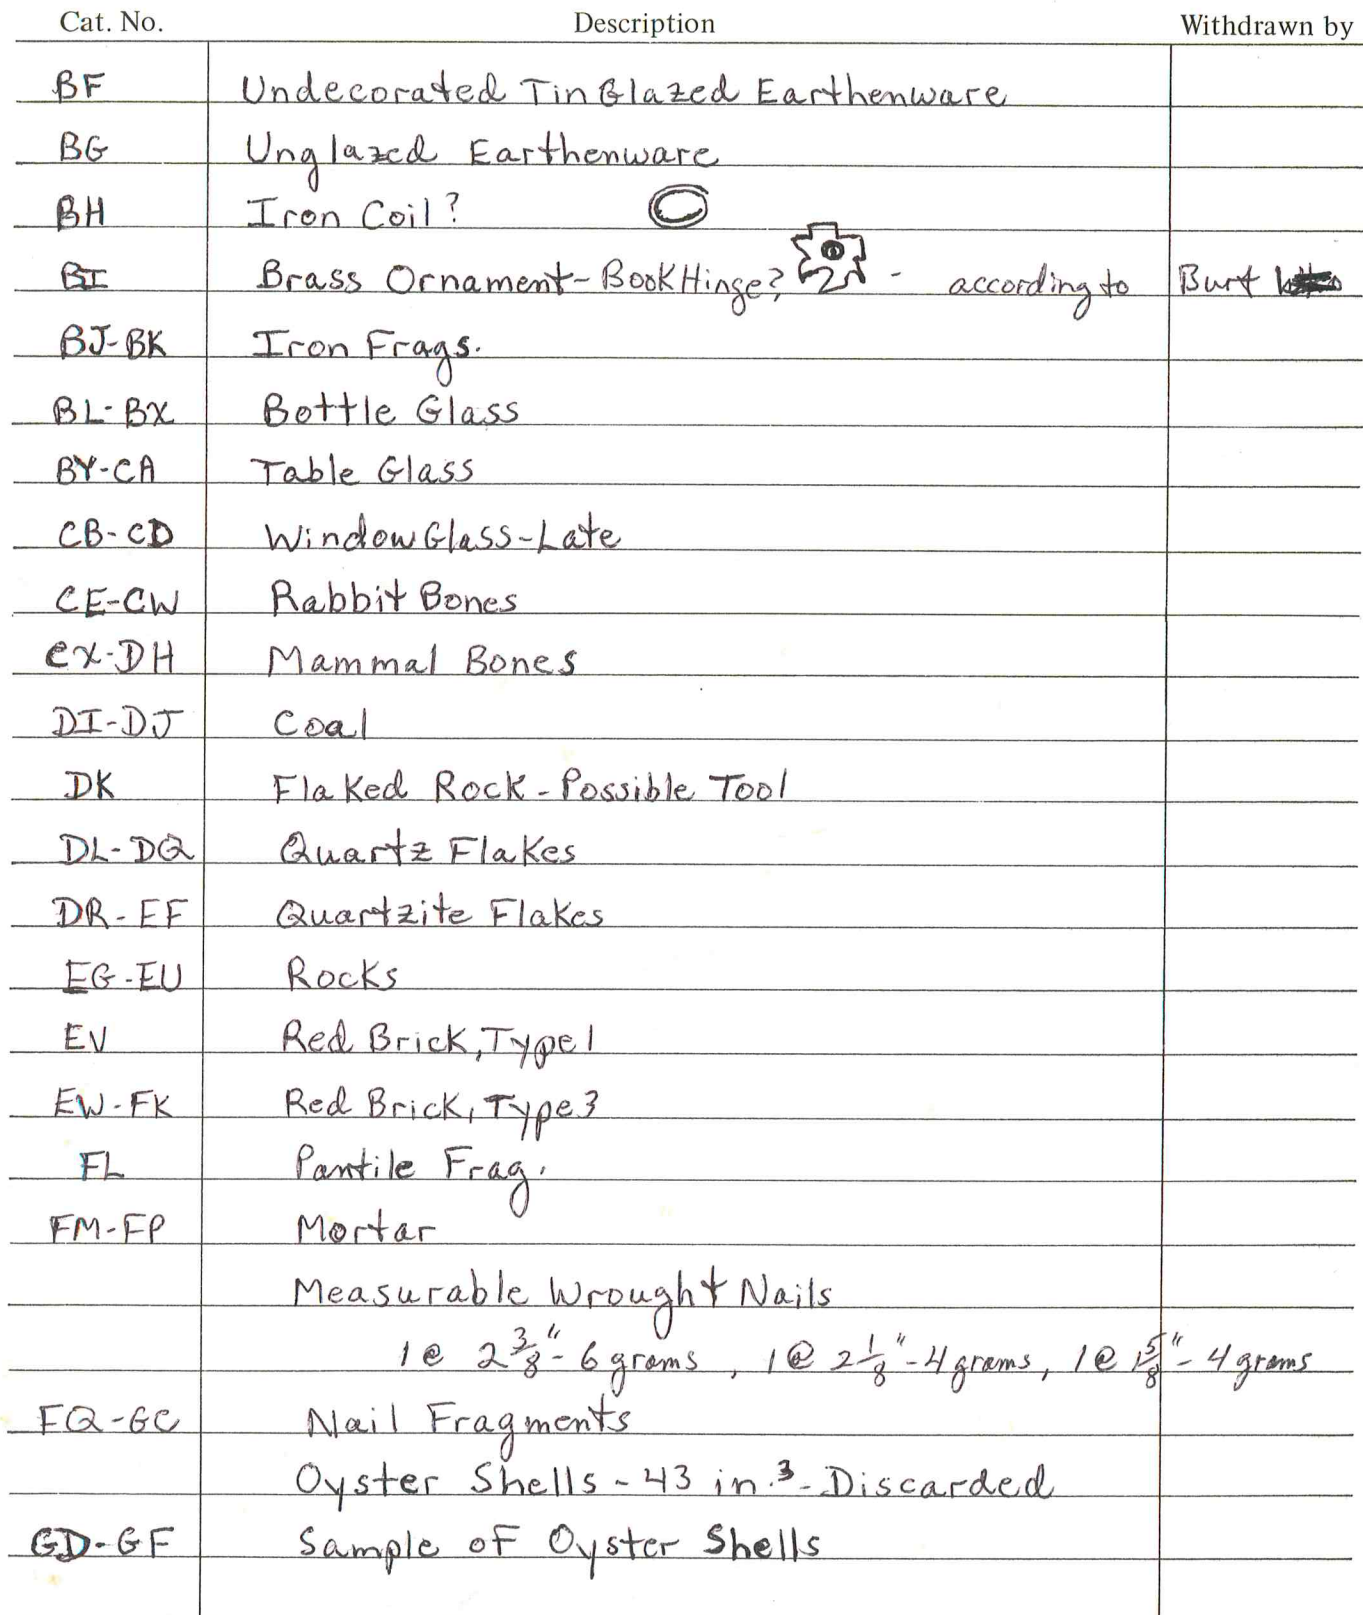 Cat. No. Description Withdrawn by
BF Undecorated Tin Glazed Earthenware
BG Unglazed Earthenware
BH Iron Coil?
BI Brass Ornament - Book Hinge? - according to Burt
BJ-BK Iron Frags.
BL-BX Bottle Glass
BY-CA Table Glass
CB-CD Window Glass-Late
CE-CW Rabbit Bones
CX-DH Mammal Bones
DI-DJ Coal
DK Flaked Rock - Possible Tool
DL-DQ Quartz Flakes
DR-EF Quartzite Flakes
EG-EU Rocks
EV Red Brick, Type 1
EW-FK Red Brick, Type 3
FL Pantile Frag.
FM-FP Mortar
Measurable Wrought Nails
1 @ 2 3/8" - 6 grams, 1 @ 2 1/8" - 4 grams, 1 @ 1 5/8" - 4 grams
FQ-GC Nail Fragments
Oyster Shells - 43 in.³ - Discarded
GD-GF Sample of Oyster Shells